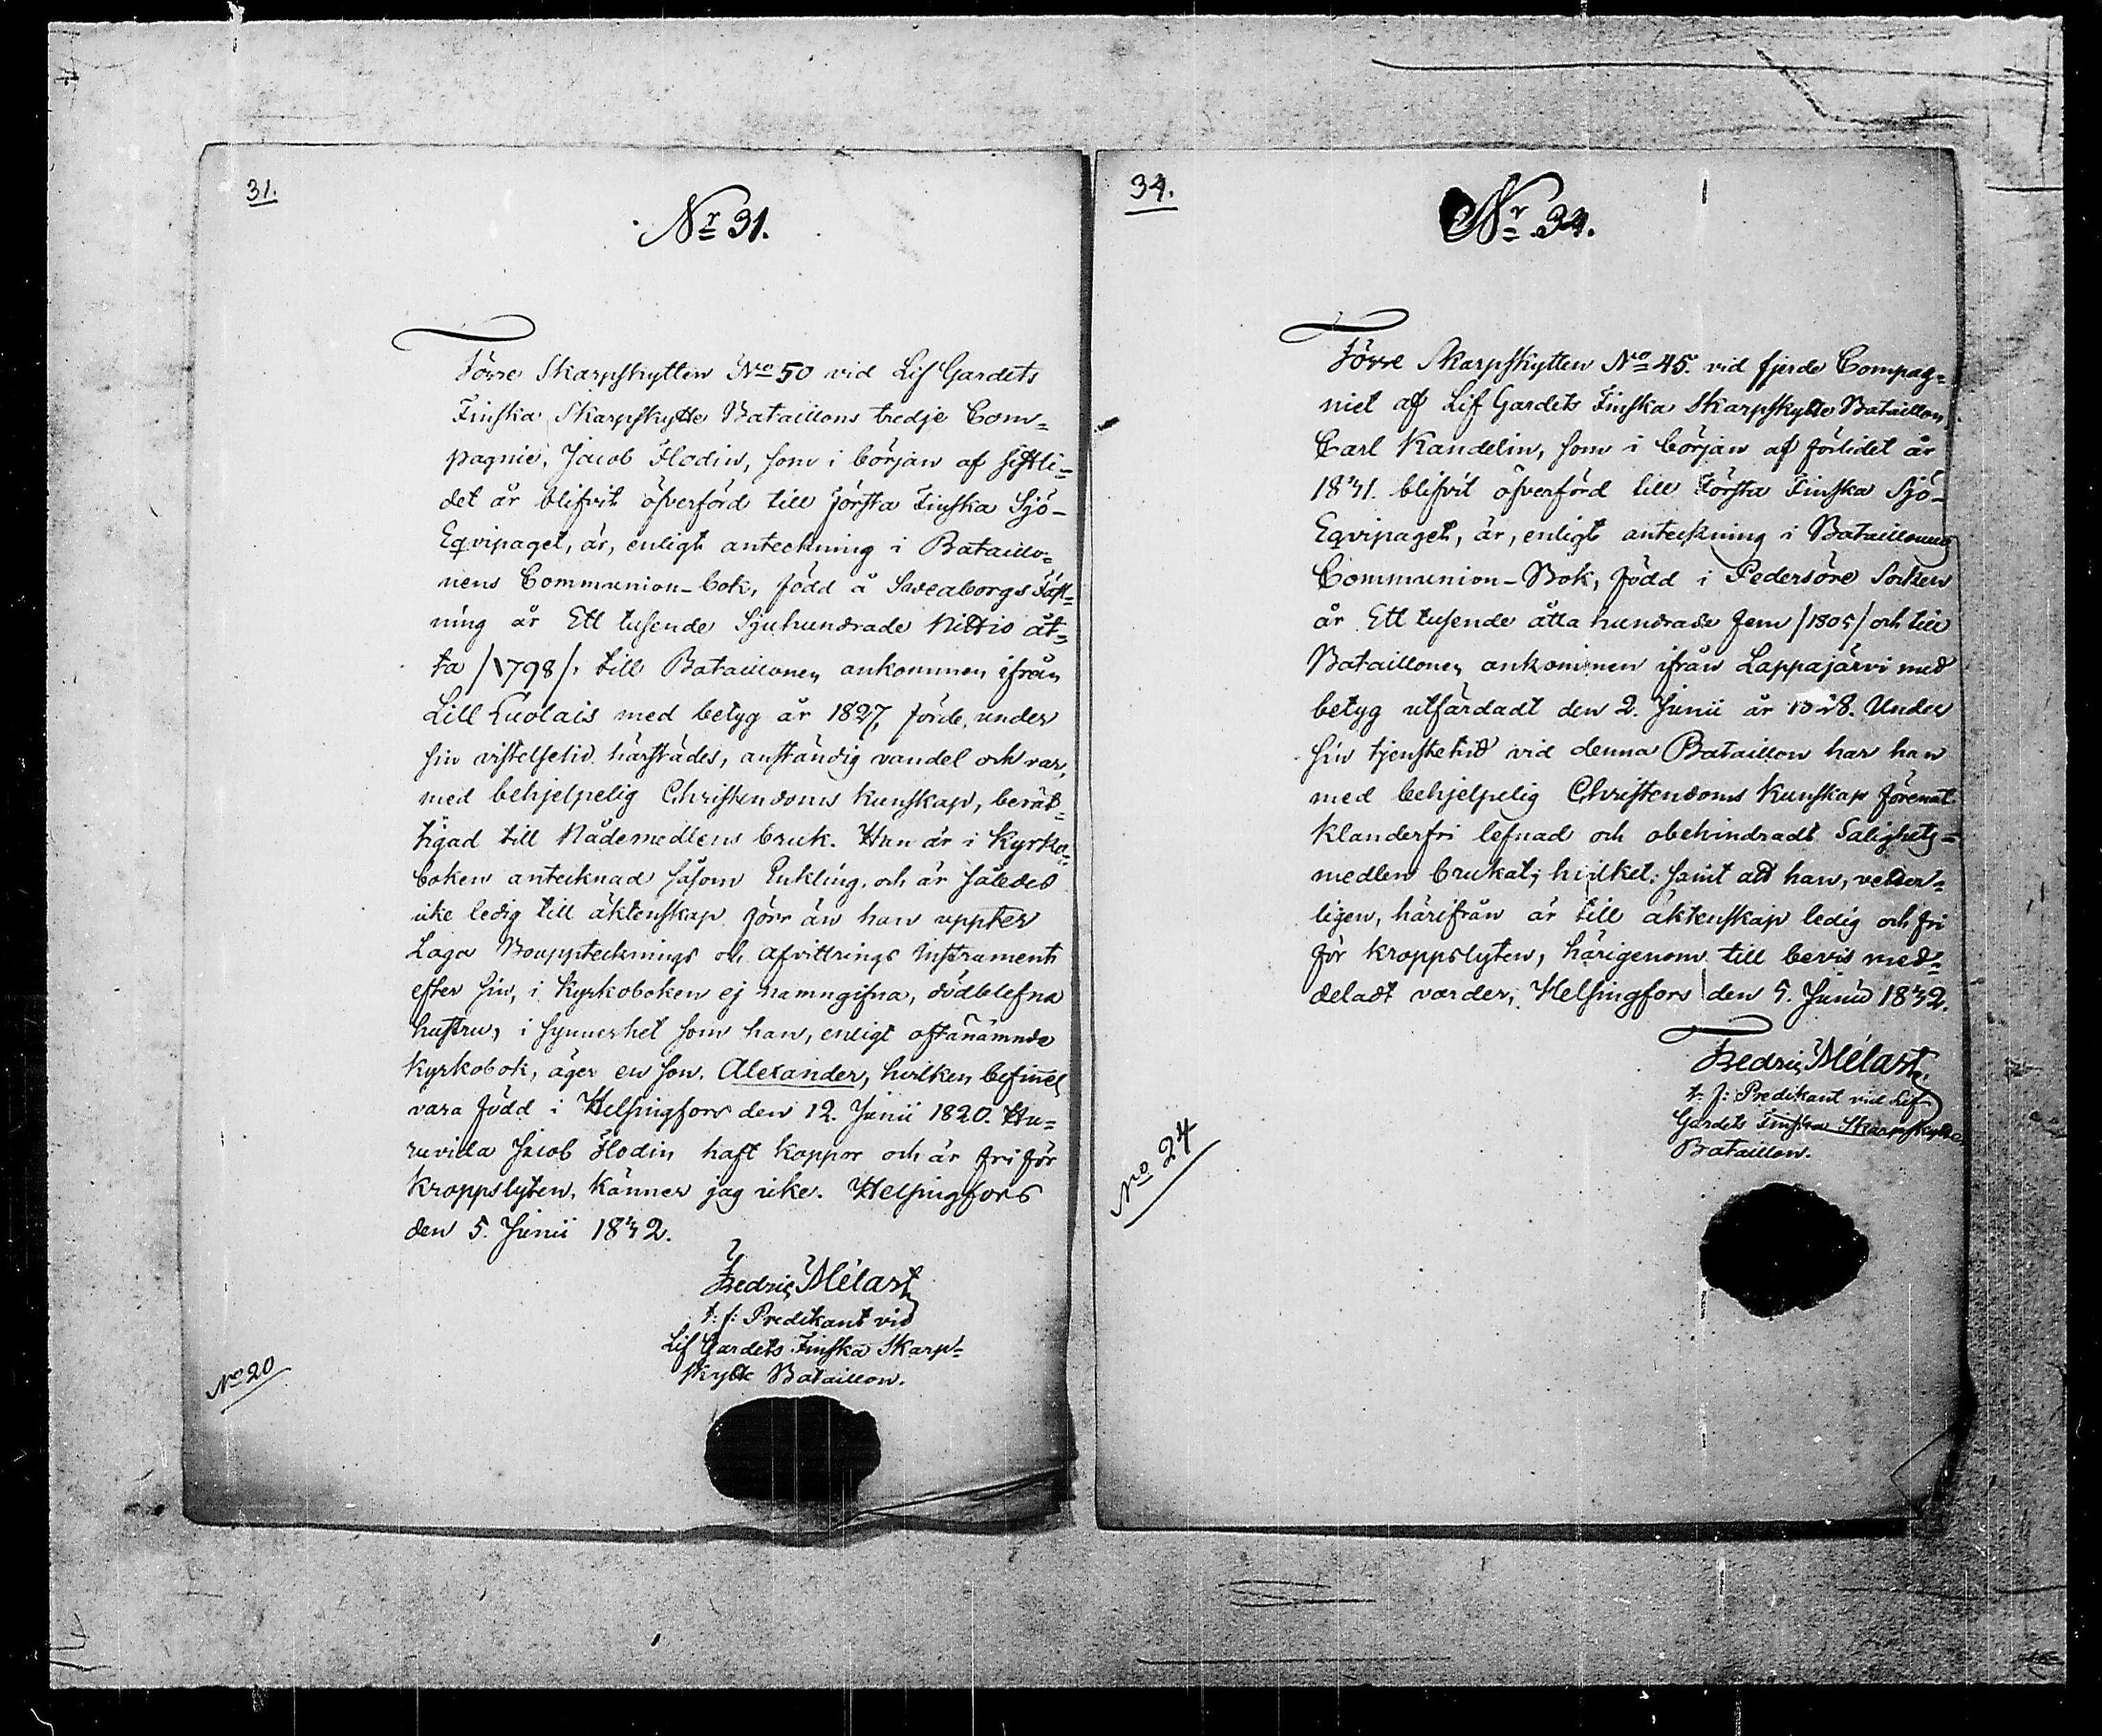 31.
Nr 31.
Förre Skarpskytten No 50 vid Lif Gardets
Finska Skarpskytte Bataillons tredje Com=
pagnie, Jacob Flodin, som i början af sistli=
det år blifvit öfverförd till första Finska Sjö-
Eqvipaget, är, enligt anteckning i Bataillo=
nens Communion-bok, född å Sveaborgs Fäst=
ning år Ett tusende Sjuhundrade Nittio åt=
ta /1798/, till Bataillonen ankommen ifrån
Lill Luolais med betyg år 1827, förde, under
sin vistelsetid härstädes, anständig vandel och var,
med behjelpelig Christendoms kunskap, berät=
tigad till Nådemedlens bruk. Han är i Kyrko=
boken antecknad såsom Enkling, och är således
icke ledig till äktenskap förr än han uppter
Laga Bouppteknings och afvittrings instrument
efter sin, i Kyrkoboken ej namngifna, dödblefna
hustru, i synnerhet som han, enligt oftanämnde
Kyrkobok, äger en son, Alexander, hvilken befinnes
vara född i Helsingfors den 12. Junii 1820. Hu=
ruvida Jacob Flodin haft koppor och är fri för
kroppslyten, känner jag icke. Helsingfors
den 5. Junii 1832.
Fredric Mélart
t: f: Predikant vid
Lif Gardets Finska Skarp=
skytte Bataillon.
No 20
34.
Nr 34.
Förre Skarpskytten No 45. vid fjerde Compag=
niet af Lif Gardets Finska Skarpskytte Bataillon,
Carl Kandelin, som i början af förlidet år
1831. blifvit öfverförd till Första Finska Sjö-
Eqvipaget, är, enligt anteckning i Bataillonens
Communion-Bok, född i Pedersöre Socken
år Ett tusende åtta hundrade fem /1805/ och till
Bataillonen ankommen ifrån Lappajärvi med
betyg utfärdadt den 2. Junii år 1828. Under
sin tjenstetid vid denna Bataillon har han
med behjelpelig Christendoms kunskap förenat
klanderfri lefnad och obehindradt Salighets=
medlen brukat; hvilket, samt att han, veter=
ligen, härifrån är till äktenskap ledig och fri
för kroppslyten, härigenom till bevis med=
deladt varder; Helsingfors den 5. Junii 1832.
Fredric Mélart
t: f: Predikant vid Lif
Gardets Finska Skarpskytte
Bataillon.
No 24